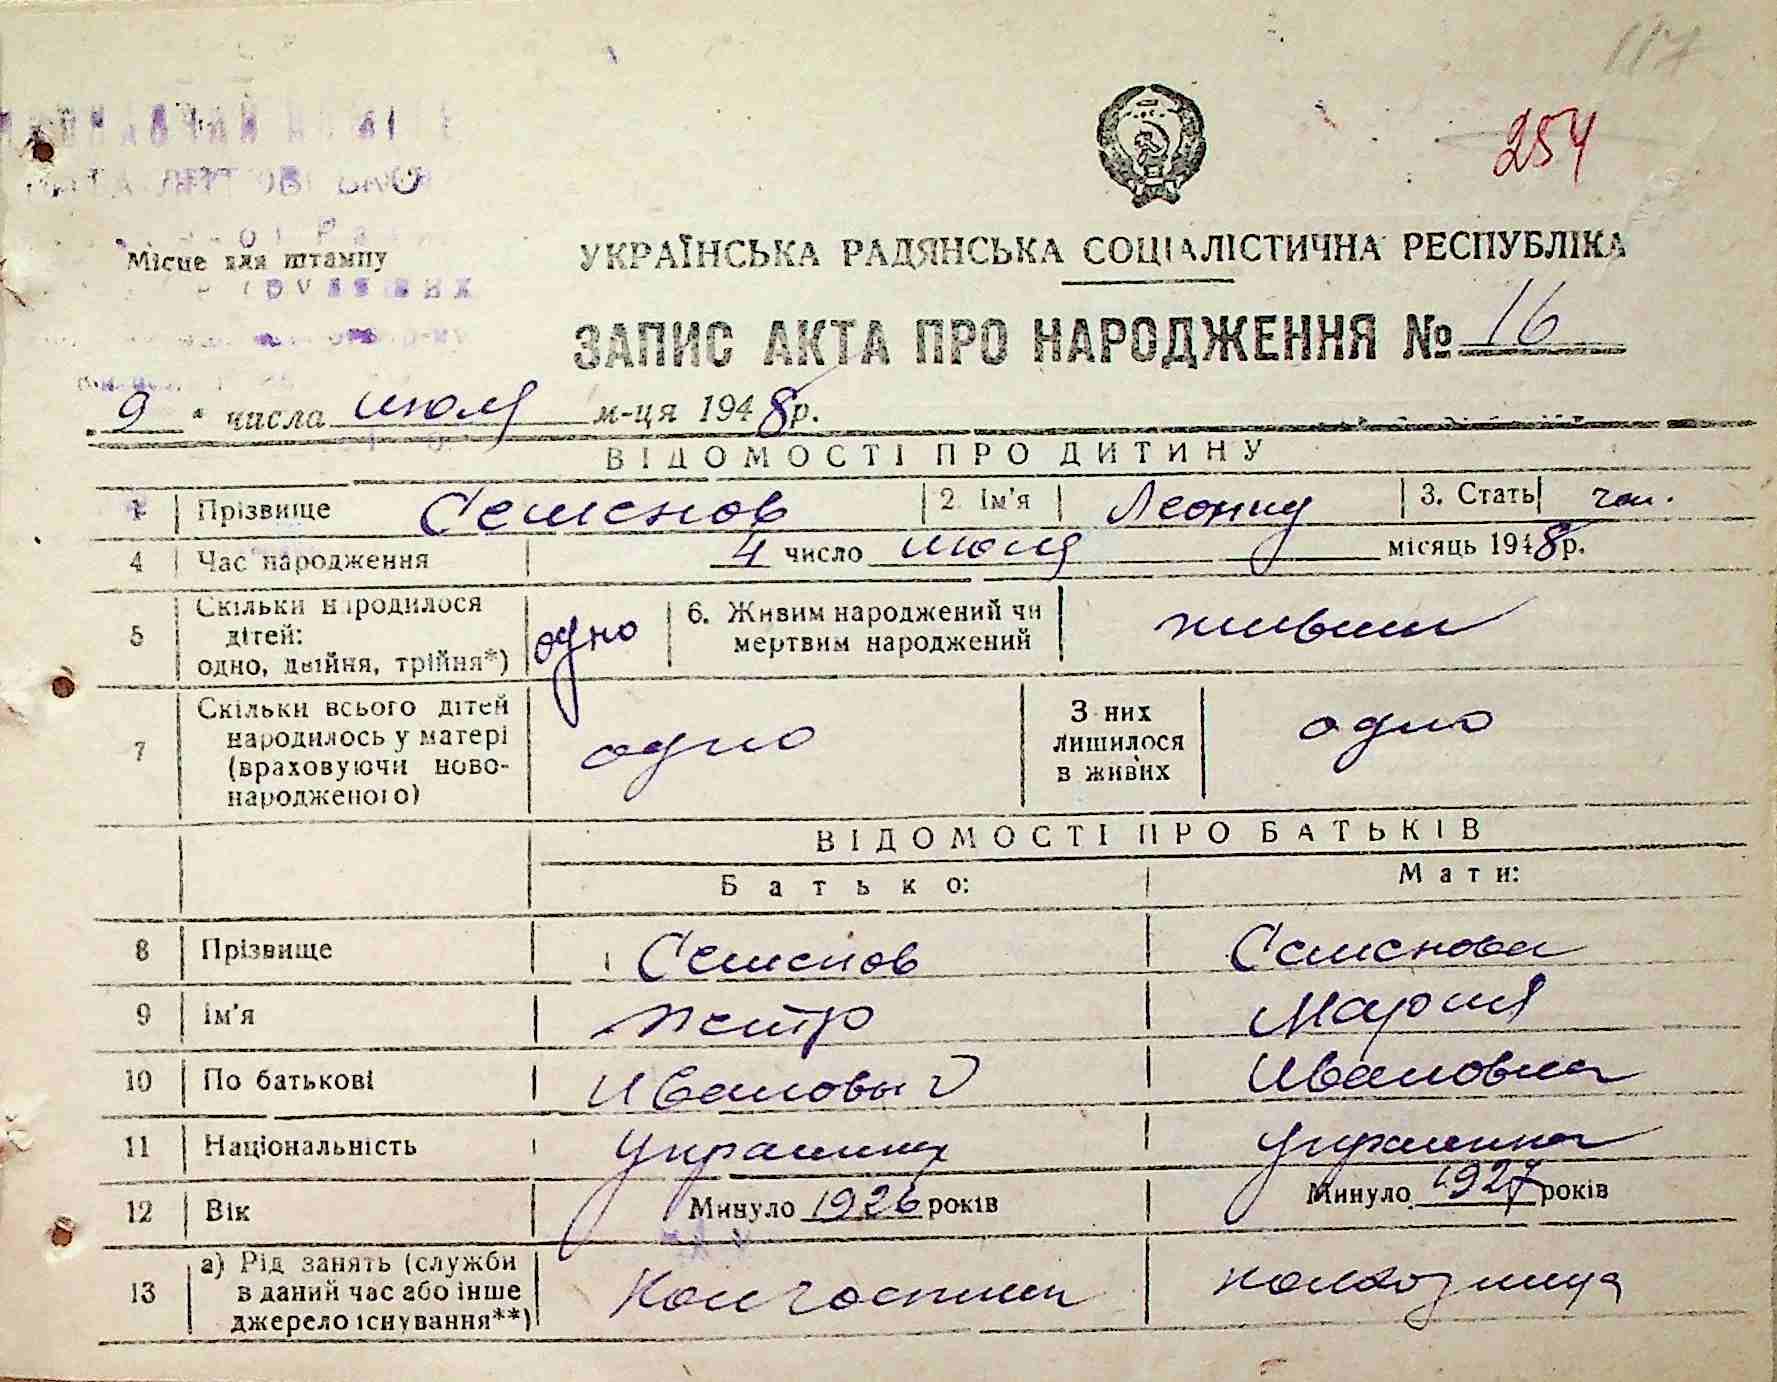 117
254
Місце для штампу
УКРАЇНСЬКА РАДЯНСЬКА СОЦІАЛІСТИЧНА РЕСПУБЛІКА
ЗАПИС АКТА ПРО НАРОДЖЕННЯ № 16
9 " числа июля м-ця 1948 р.
ВІДОМОСТІ ПРО ДИТИНУ
1 Прізвище Семенов 2. Ім'я Леонид 3. Стать чол.
4 Час народження 4 число июля місяць 1948 р.
5 Скільки народилося дітей: одно, двійня, трійня*) одно 6. Живим народжений чи мертвим народжений живым
7 Скільки всього дітей народилось у матері (враховуючи ново-народженого) одно З них лишилося в живих одно
ВІДОМОСТІ ПРО БАТЬКІВ
Батько: Мати:
8 Прізвище Семенов Семенова
9 Ім'я Петр Мария
10 По батькові Ивановыч Ивановна
11 Національність Украинец Украинка
12 Вік Минуло 1926 років Минуло 1927 років
13 а) Рід занять (служби в даний час або інше джерело існування**) колхозница